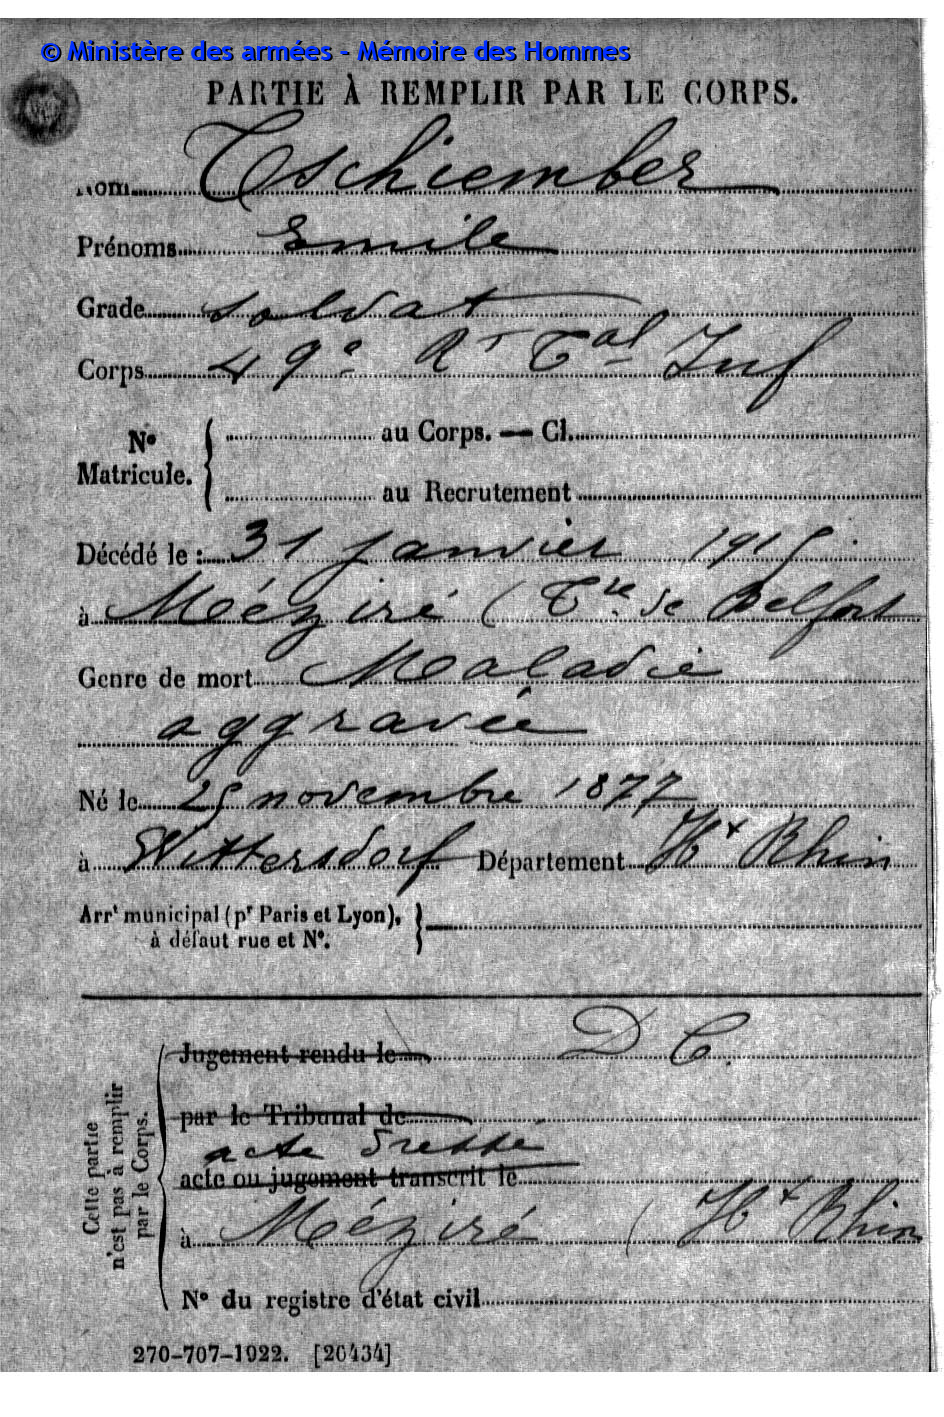 © Ministère des armées - Mémoire des Hommes
PARTIE À REMPLIR PAR LE CORPS.
Nom Tschiember
Prénoms Emile
Grade soldat
Corps 49e Rt Tal Inf
No Matricule. { au Corps. — Cl.
au Recrutement
Décédé le : 31 janvier 1915
à Méziré (Tre de Belfort
Genre de mort Maladie
aggravée
Né le 25 novembre 1877
à Wittersdorf Département Ht Rhin
Arrt municipal (pr Paris et Lyon),
à défaut rue et No.
Cette partie
n'est pas à remplir
par le Corps.
Jugement rendu le D C.
par le Tribunal de
acte dressé
acte ou jugement transcrit le
à Méziré (Ht Rhin
No du registre d'état civil
270-707-1922. [26434]